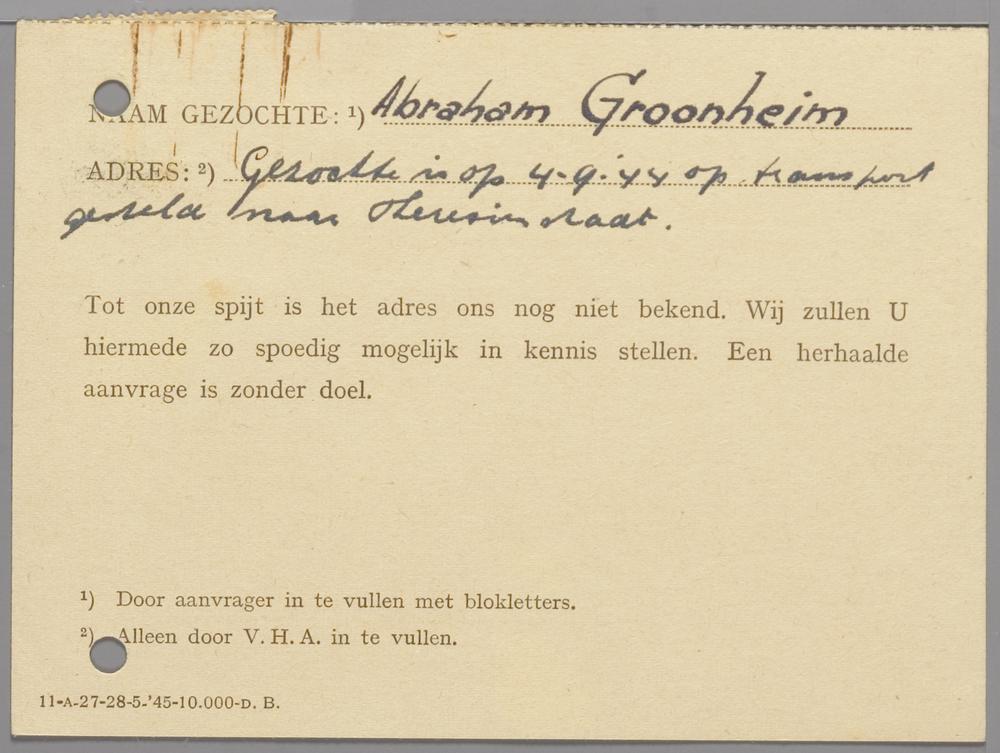 NAAM GEZOCHTE: ¹) Abraham Groonheim
ADRES: ²) Gezochte is op 4-9-'44 op transport
gesteld naar Theresinstadt.
Tot onze spijt is het adres ons nog niet bekend. Wij zullen U
hiermede zo spoedig mogelijk in kennis stellen. Een herhaalde
aanvrage is zonder doel.
¹) Door aanvrager in te vullen met blokletters.
²) Alleen door V. H. A. in te vullen.
11-A-27-28-5-'45-10.000-D. B.